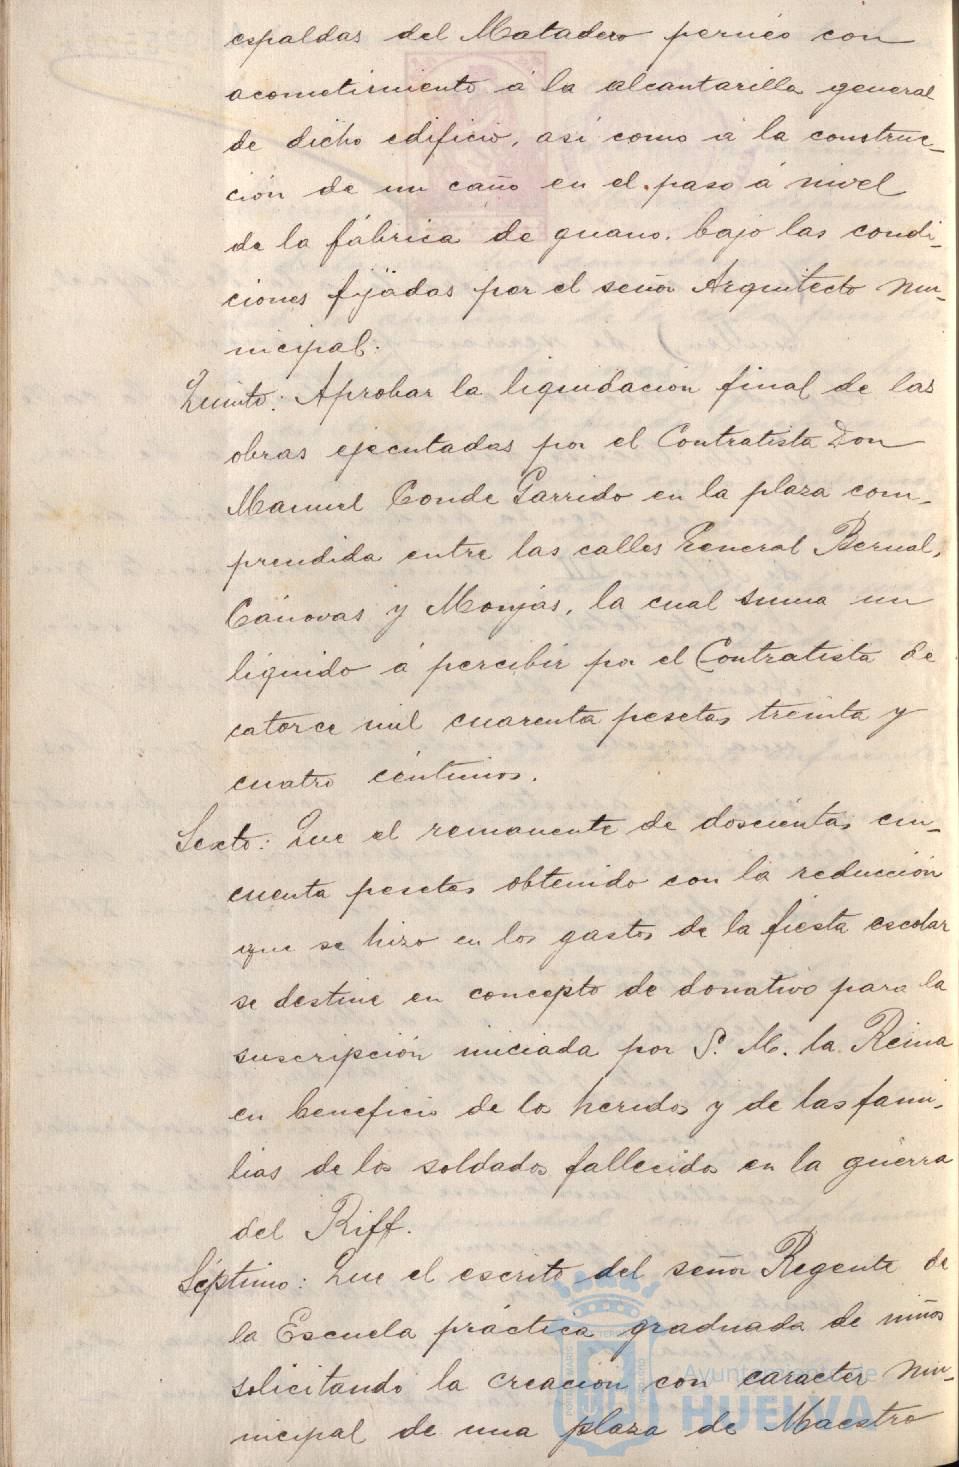 espaldas del Matadero pernéo con
acometimiento á la alcantarilla general
de dicho edificio, así como á la construc-
ción de un caño en el paso á nivel
de la fábrica de guano, bajo las condi-
ciones fijadas por el señor Arquitecto Mu-
nicipal.
Quinto: Aprobar la liquidacion final de las
obras ejecutadas por el Contratista Don
Manuel Conde Garrido en la plaza com-
prendida entre las calles General Bernal,
Cánovas y Monjas, la cual suma un
líquido á percibir por el Contratista de
catorce mil cuarenta pesetas treinta y
cuatro céntimos.
Sexto: Que el remanente de doscientas cin-
cuenta pesetas obtenido con la reducción
que se hizo en los gastos de la fiesta escolar
se destine en concepto de donativo para la
suscripción iniciada por S. M. la Reina
en beneficio de los heridos y de las fami-
lias de los soldados fallecidos en la guerra
del Riff.
Séptimo: Que el escrito del señor Regente de
la Escuela práctica graduada de niños
solicitando la creacion con caracter Mu-
nicipal de una plaza de Maestro
Ayuntamiento de
HUELVA